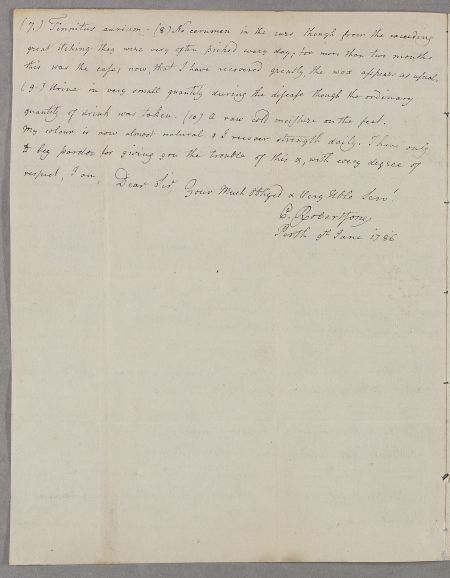 (7.) Tinnitus aurium. (8) No cerumen in the ears though from the exceeding
great itching they were very often picked every day; for more than two months
this was the case; now, that I have recovered greatly, the wax appears as usual.
(9.) Urine in very small quantity during the disease though the ordinary
quantity of drink was taken. (10) A raw cold moisture on the feet.
My colour is now almost natural & I recover strength daily. I have only
to beg pardon for giving you the trouble of this &, with every degree of
respect, I am, Dear Sir Your Much Obliged & Very Hble Servt.
C. Robertson
Perth 9th June 1786